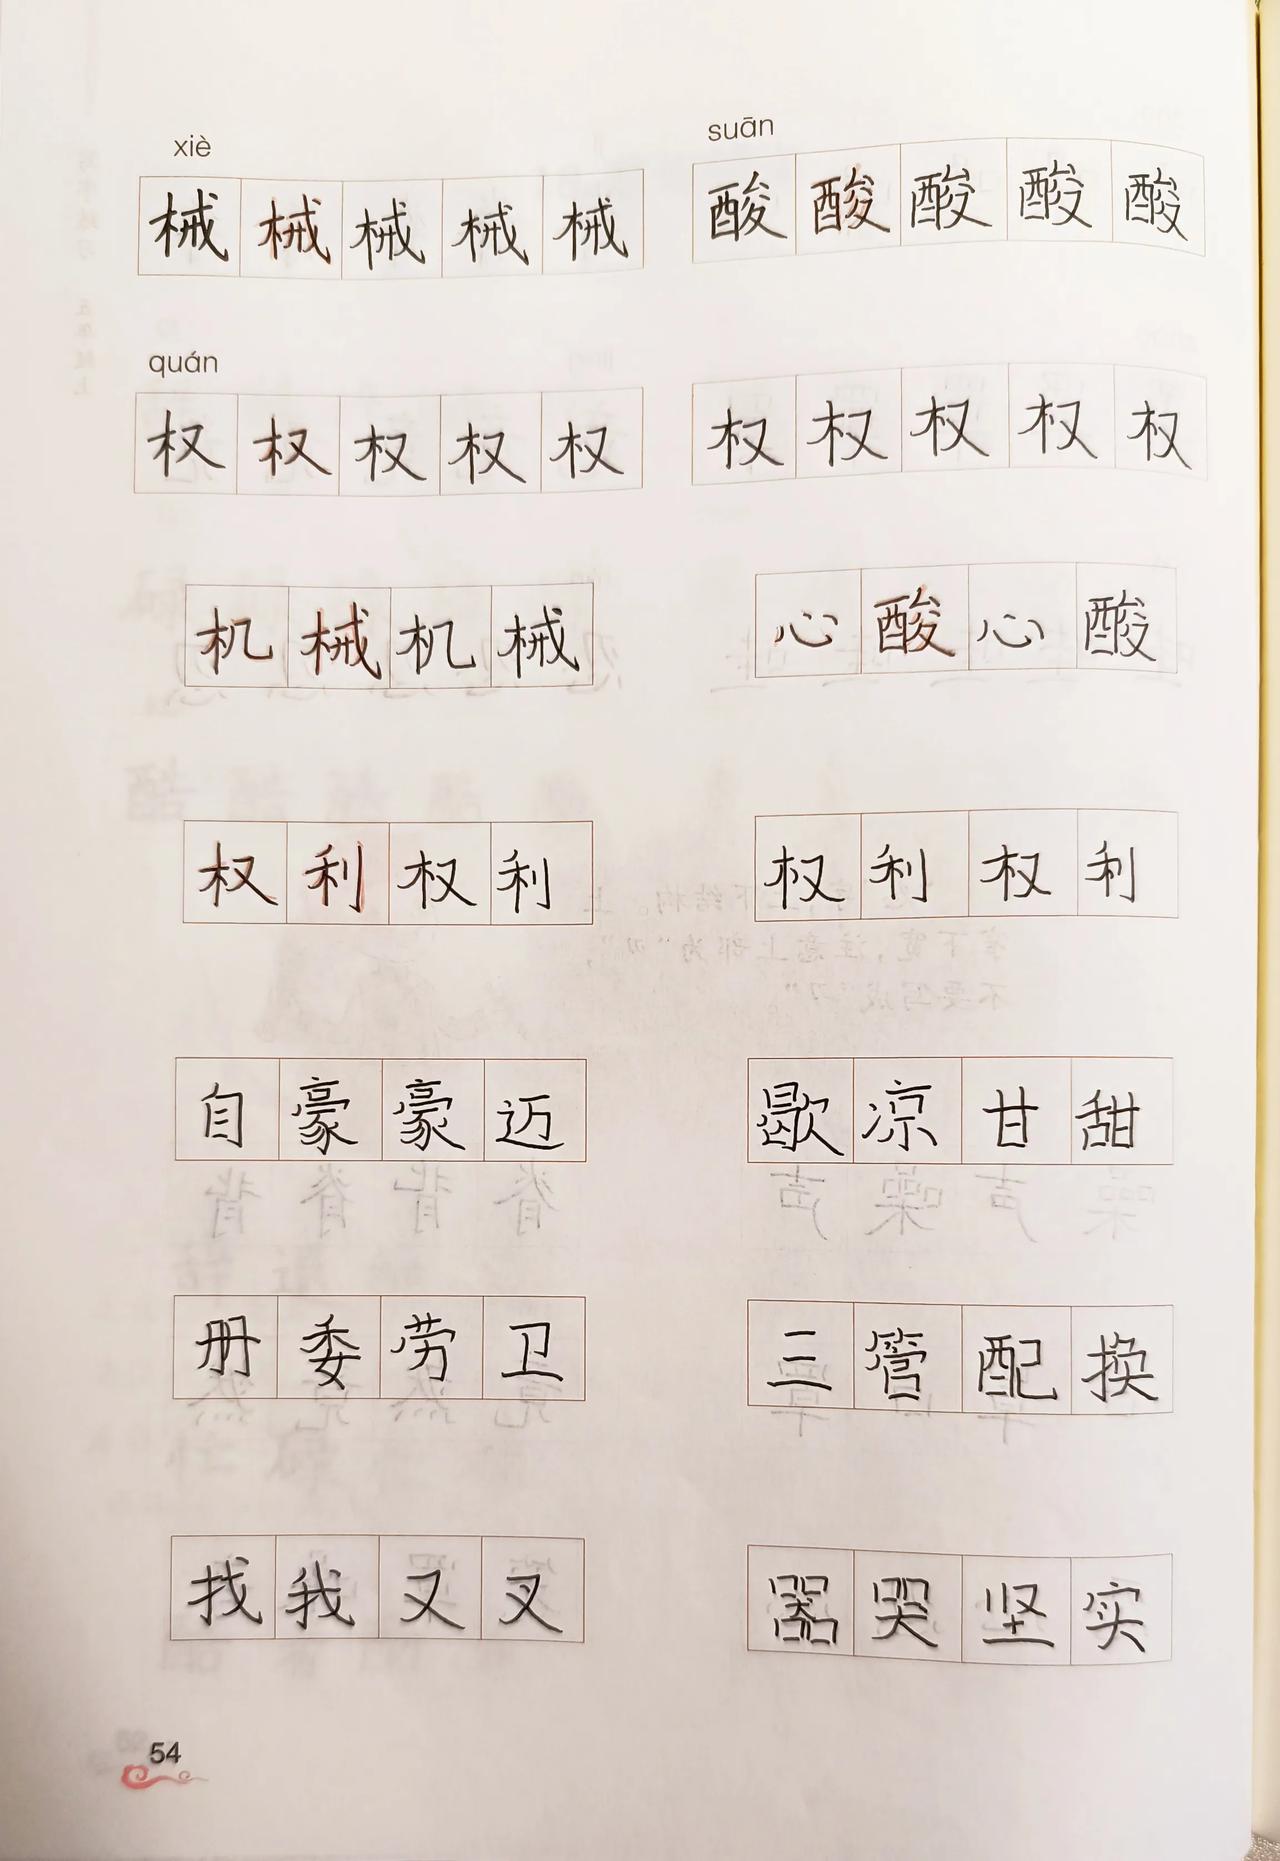 xiè suān
械 械 械 械 械 酸 酸 酸 酸 酸
quán
权 权 权 权 权 权 权 权 权 权
机 械 机 械 心 酸 心 酸
权 利 权 利 权 利 权 利
自 豪 豪 迈 歇 凉 甘 甜
册 委 劳 卫 三 管 配 换
找 我 又 叉 器 哭 坚 实
54